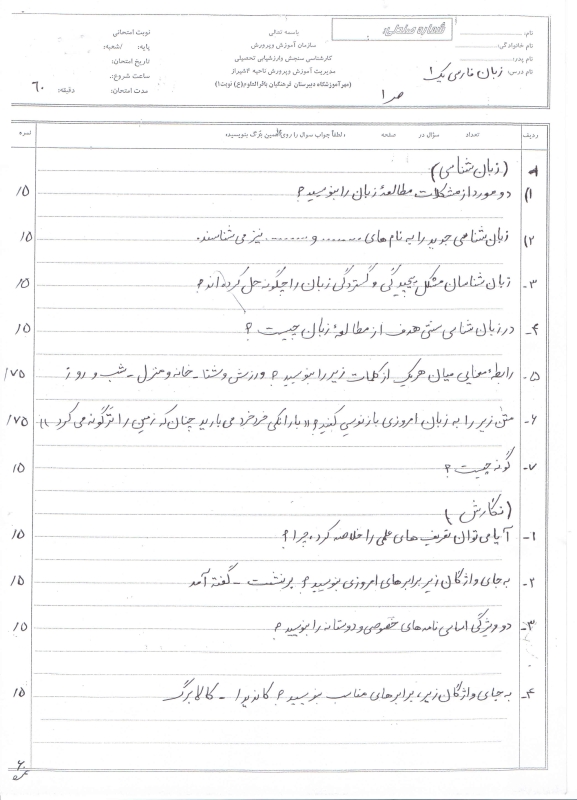 باسمه تعالی
سازمان آموزش و پرورش
کارشناسی سنجش و ارزشیابی تحصیلی
مدیریت آموزش و پرورش ناحیه ۴ شیراز
(مهر آموزشگاه دبیرستان فرهنگیان باقرالعلوم(ع) نوبت۱)
شماره صندلی:
نام:
نام خانوادگی:
نام پدر:
نام درس: زبان فارسی یک ۱
ص ۱
نوبت امتحانی
پایه: /شعبه:
تاریخ امتحان:
ساعت شروع:
مدت امتحان: ۶۰ دقیقه:
ردیف تعداد سؤال در صفحه «لطفاً جواب سوال را روی همین برگ بنویسید» نمره
(زبان شناسی)
۱) دو مورد از مشکلات مطالعهٔ زبان را بنویسید؟ /۵
۲) زبان شناسی جدید را به نام های ........ و ........ نیز می شناسند. /۵
۳- زبان شناسان مشکل پیچیدگی و گستردگی زبان را چگونه حل کرده اند؟ /۵
۴- در زبان شناسی سنتی هدف از مطالعهٔ زبان چیست؟ /۵
۵- رابطهٔ معنایی میان هریک از کلمات زیر را بنویسید؟ ورزش و شنا - خانه و منزل - شب و روز /۷۵
۶- متن زیر را به زبان امروزی بازنویسی کنید؟ «بارانکی خرد خرد می بارید چنان که زمین را ترگونه می کرد» /۷۵
۷- گونه چیست؟ /۵
(نگارش)
۱- آیا می توان تعریف های علمی را خلاصه کرد. چرا؟ /۵
۲- به جای واژگان زیر برابرهای امروزی بنویسید؟ برنشست - گفته آمد /۵
۳- دو ویژگی اساسی نامه های خصوصی و دوستانه را بنویسید؟ /۵
۴- به جای واژگان زیر، برابرهای مناسب بنویسید؟ کاندیدا - کالابرگ /۵